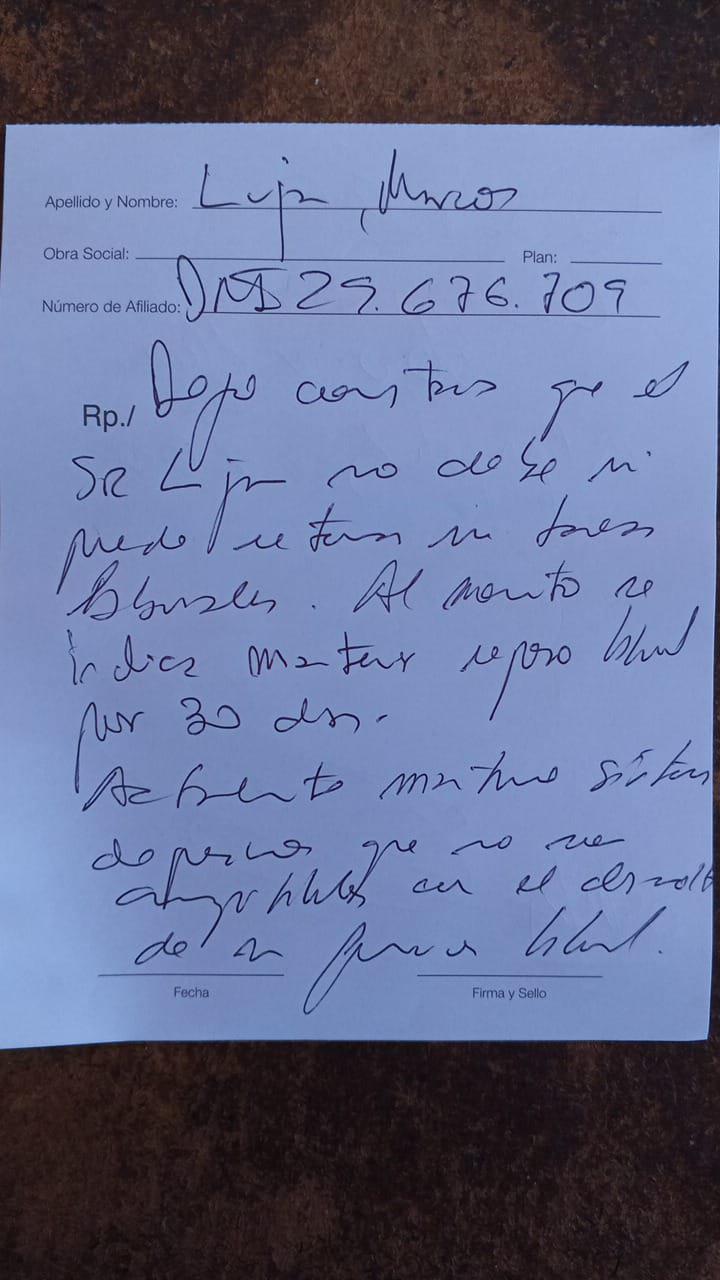 Apellido y Nombre: Lujan, Marcos
Obra Social: Plan:
Número de Afiliado: DNI 29.676.709
Rp./ Dejo constar que el
SR Lujan no debe ni
puede retomar sus tareas
laborales. Al momento se
indica mantener reposo laboral
por 30 dias.
Actualmente mantiene síntomas
depresivos que no son
compatibles con el desarrollo
de su jornada laboral.
Fecha Firma y Sello